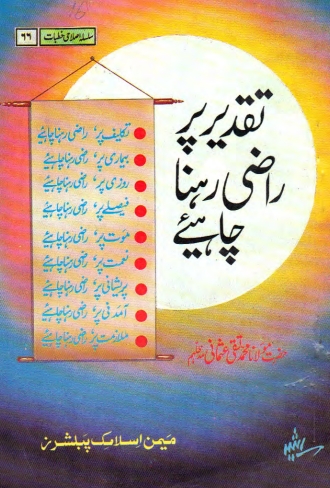 سلسلہ اصلاحی خطبات ۶۶
تقدیر پر
راضی رہنا
چاہیئے
تکلیف پر، راضی رہنا چاہیئے
بیماری پر، راضی رہنا چاہیئے
روزی پر، راضی رہنا چاہیئے
فیصلے پر، راضی رہنا چاہیئے
موت پر، راضی رہنا چاہیئے
نعمت پر، راضی رہنا چاہیئے
پریشانی پر، راضی رہنا چاہیئے
آمدنی پر، راضی رہنا چاہیئے
ملازمت پر، راضی رہنا چاہیئے
حضرت مولانا محمد تقی عثمانی مدظلہم
میمن اسلامک پبلشرز